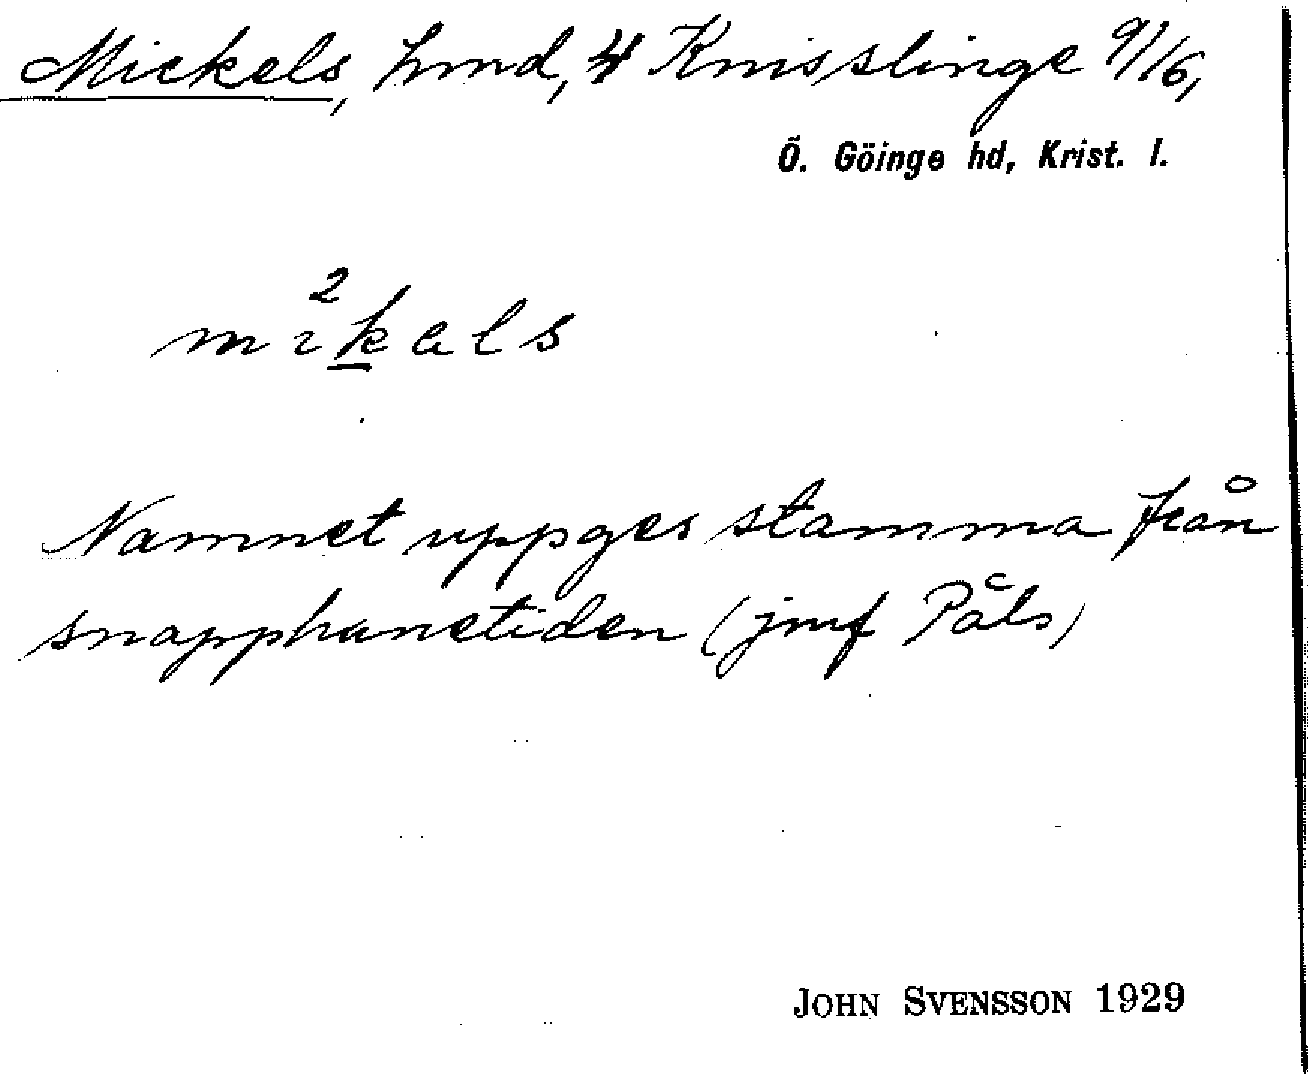 Mickels, hmd, 4 Knisslinge 9/16,
Ö. Göinge hd, Krist. l.
Namnet uppges stamma från
snapphanetiden (jmf Påls)
JOHN SVENSSON 1929